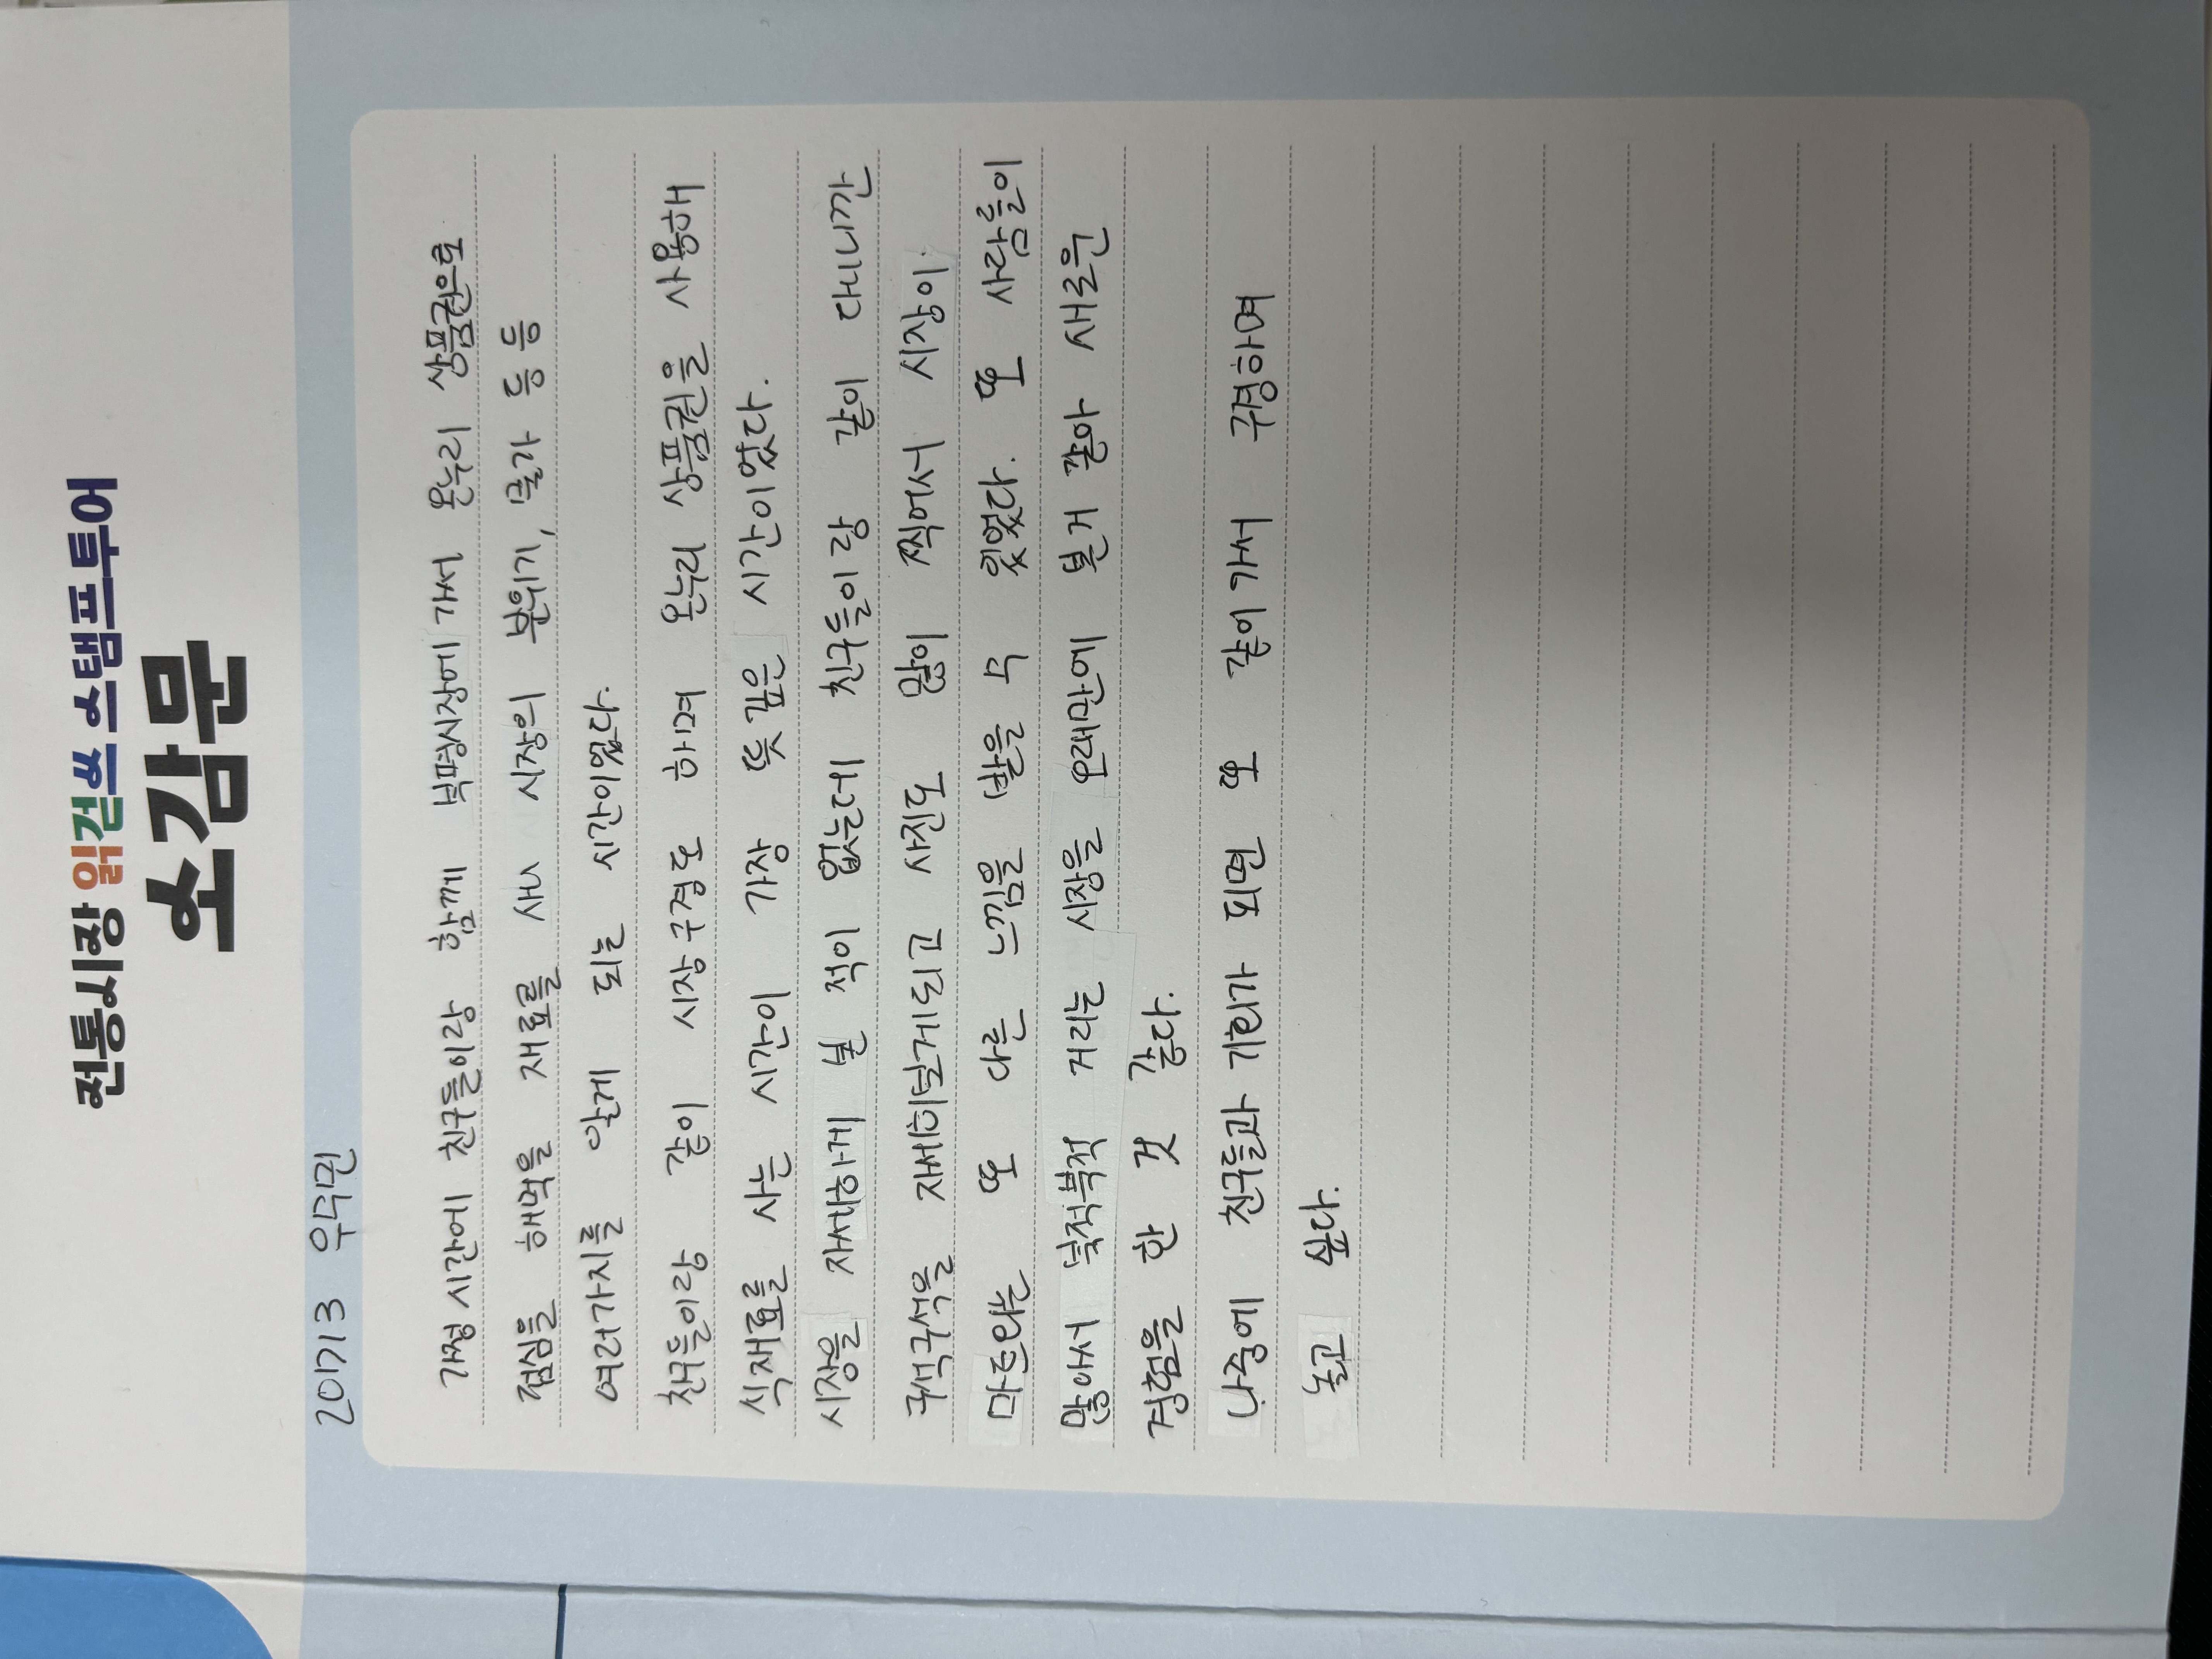 전통시장 읽걷쓰 스탬프투어
소감문
20713 우수민
가정 시간에 친구들이랑 함께 부평시장에 가서 온누리 상품권으로
점심을 해먹을 재료를 사니 시장의 분위기, 물가 등 등
여러가지를 알게 되는 시간이었다.
친구들이랑 같이 시장구경도 하며 온누리 상품권을 사용해
식재료를 사는 시간이 가장 뜻 깊은 시간이었다.
시장을 자세하게 본 적이 없는데 친구들이랑 같이 다니까
구석구석을 자세히알게되고 사진도 많이 찍어서 시장이
마트와는 또 다른 느낌을 받을 수 있었다. 또 사람들이
많아서 북적북적 거리는 시장을 오래만에 본거 같아 새로운
경험을 한 것 같다.
나중에 친구들과 기회가 되면 또 같이 가서 구경하며
놀고 싶다.